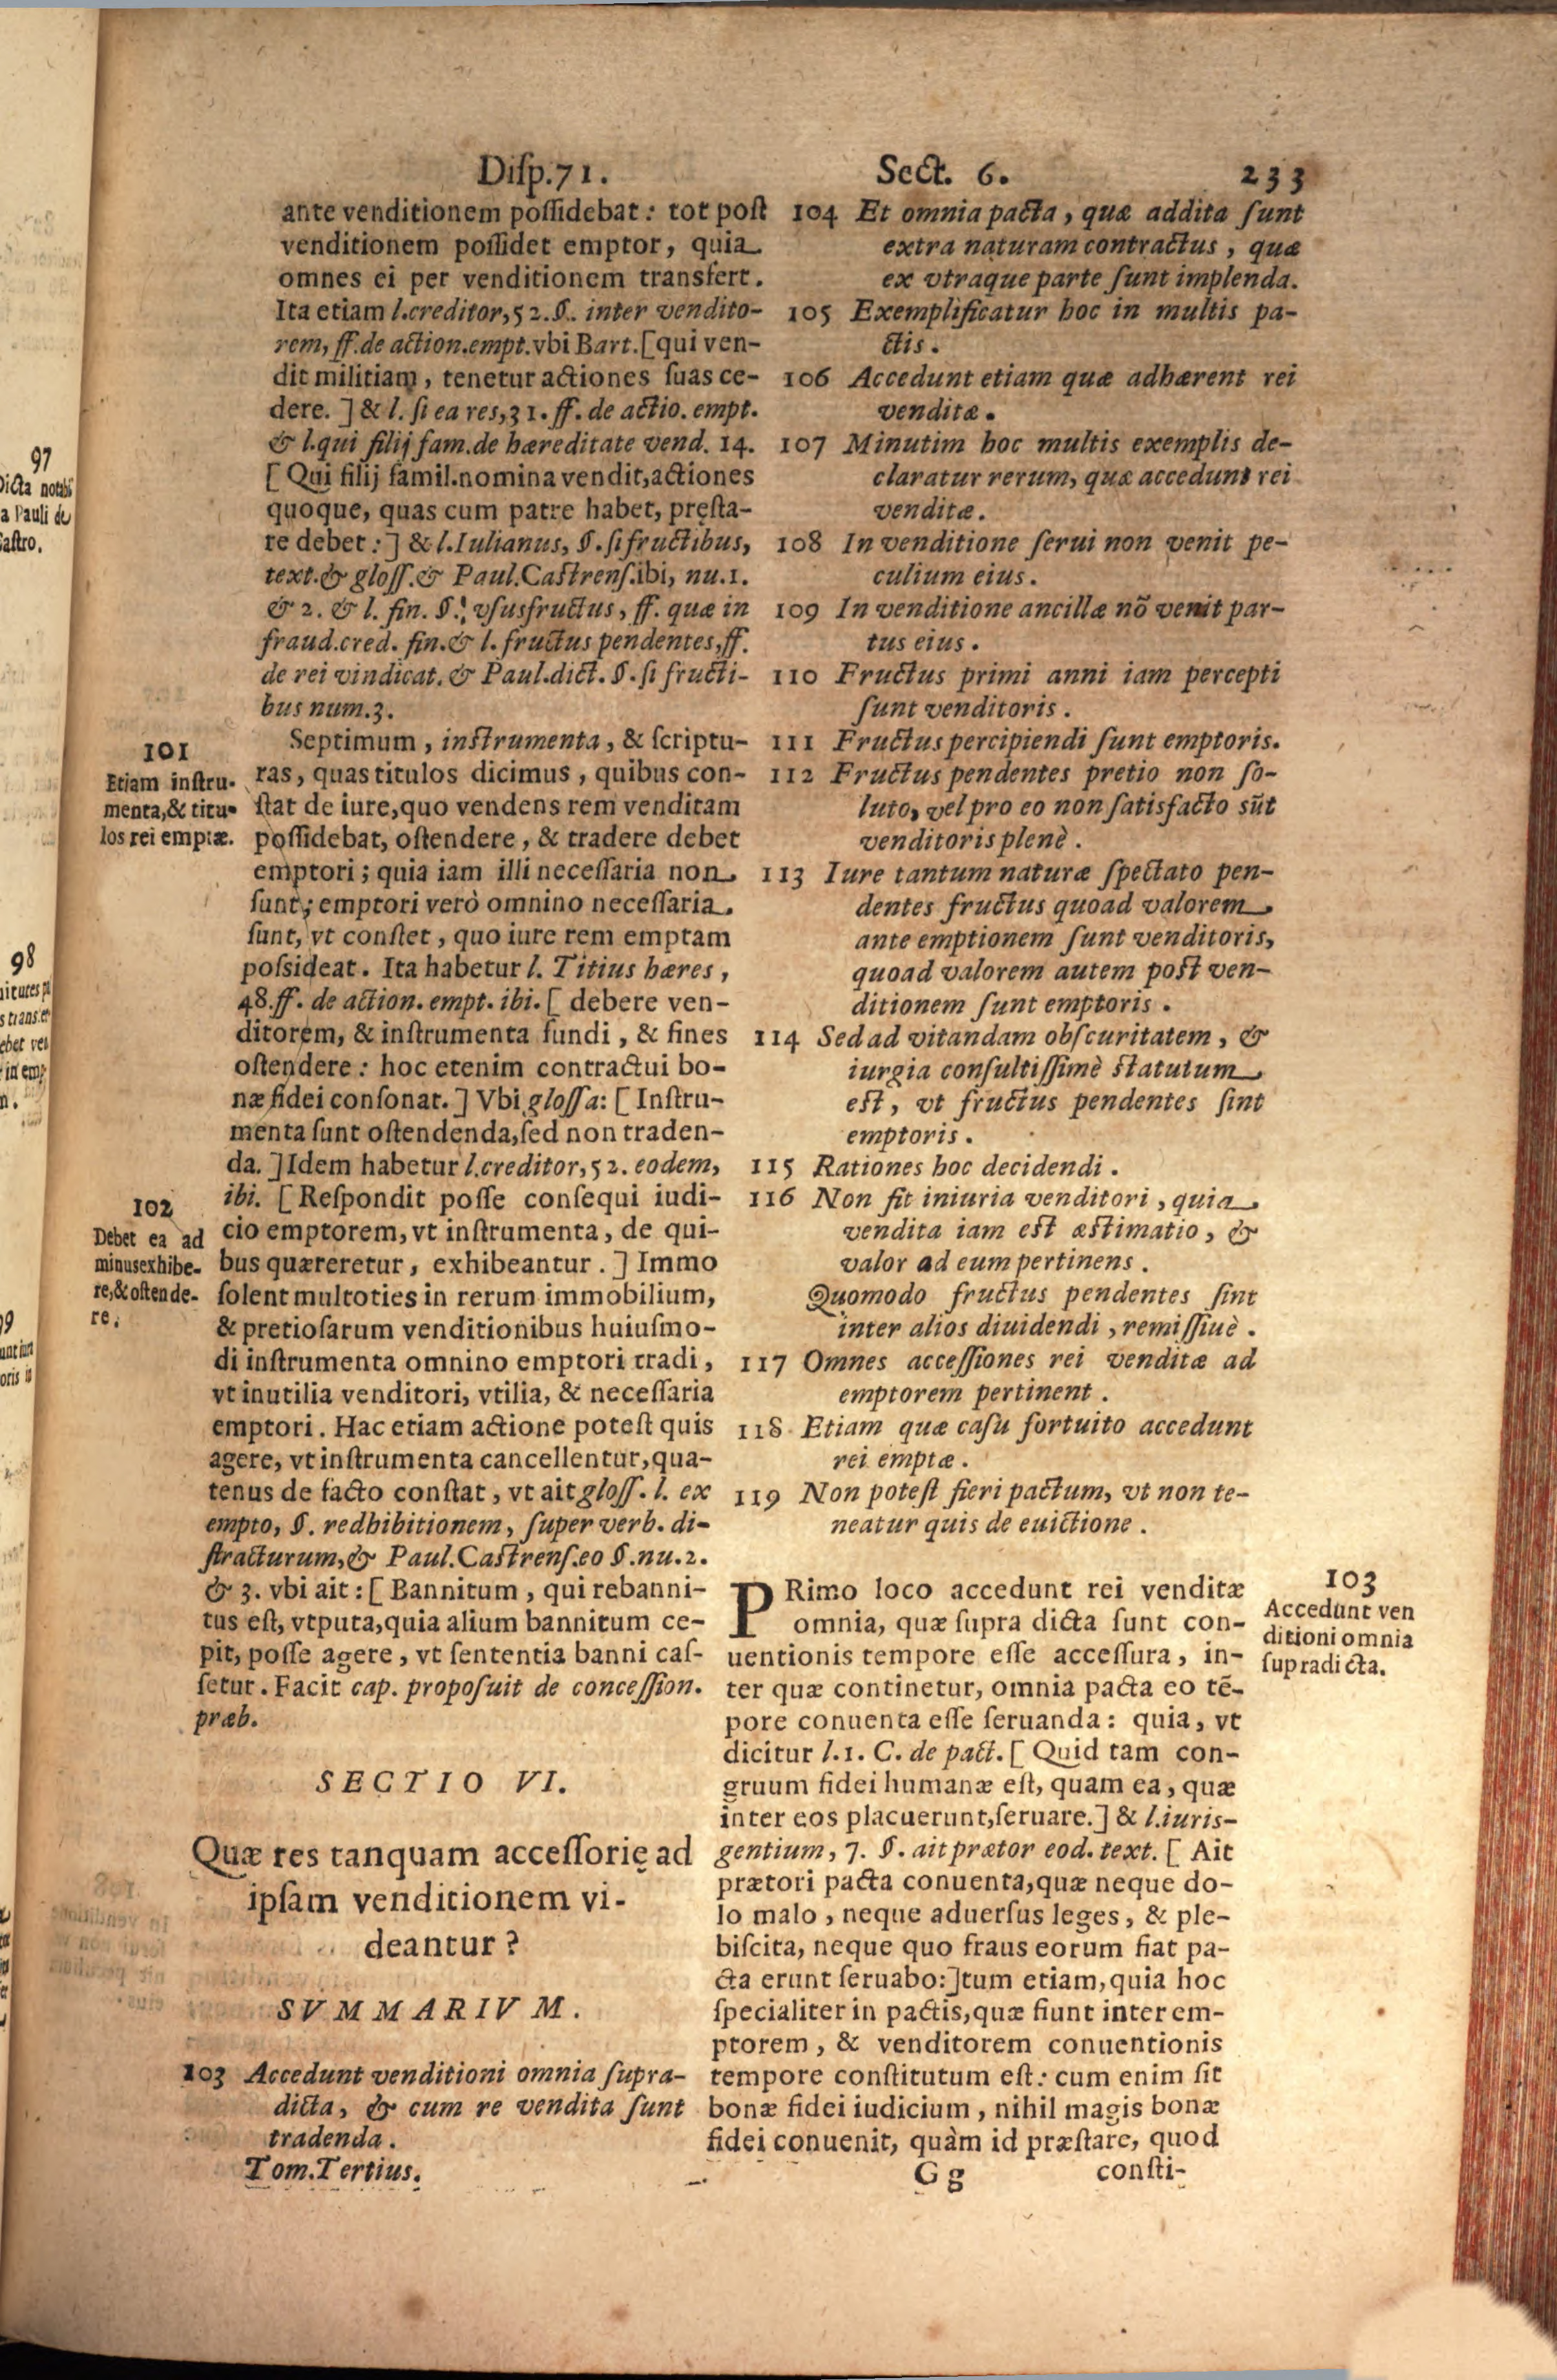 Disp.71. Sect. 6. 233
ante venditionem possidebat: tot post
venditionem possidet emptor, quia
omnes ei per venditionem transfert.
Ita etiam l.creditor,52.§. inter vendito-
rem, ff.de action.empt.vbi Bart.[qui ven-
dit militiam, tenetur actiones suas ce-
dere.] & l. si ea res,31.ff. de actio. empt.
& l.qui filij fam.de hæreditate vend. 14.
[Qui filij famil.nomina vendit,actiones
quoque, quas cum patre habet, pręsta-
re debet:] & l.Iulianus, §.si fructibus,
text.& gloss.& Paul.Castrens.ibi, nu.1.
& 2. & l. fin. §. vsusfructus, ff. quæ in
fraud.cred. fin.& l.fructus pendentes,ff.
de rei vindicat.& Paul.dict. §.si fructi-
bus num.3.
101
Etiam instru-
menta,& titu-
los rei emptæ.
Septimum, instrumenta, & scriptu-
ras, quas titulos dicimus, quibus con-
stat de iure,quo vendens rem venditam
possidebat, ostendere, & tradere debet
emptori; quia iam illi necessaria non
sunt; emptori verò omnino necessaria
sunt, vt constet, quo iure rem emptam
possideat. Ita habetur l. Titius hæres,
48.ff. de action. empt. ibi.[debere ven-
ditorem, & instrumenta fundi, & fines
ostendere: hoc etenim contractui bo-
næ fidei consonat.] Vbi glossa: [Instru-
menta sunt ostendenda,sed non traden-
da.]Idem habetur l.creditor,52. eodem,
102
Debet ea ad
minus exhibe-
re,& ostende-
re.
ibi. [Respondit posse consequi iudi-
cio emptorem, vt instrumenta, de qui-
bus quæreretur, exhibeantur.] Immo
solent multoties in rerum immobilium,
& pretiosarum venditionibus huiusmo-
di instrumenta omnino emptori tradi,
vt inutilia venditori, vtilia, & necessaria
emptori. Hac etiam actione potest quis
agere, vt instrumenta cancellentur,qua-
tenus de facto constat, vt ait gloss. l. ex
empto, §. redhibitionem, super verb. di-
stracturum,& Paul.Castrens.eo §.nu.2.
& 3. vbi ait:[Bannitum, qui rebanni-
tus est, vtputa,quia alium bannitum ce-
pit, posse agere, vt sententia banni cas-
setur. Facit cap. proposuit de concession.
præb.
SECTIO VI.
Quæ res tanquam accessorię ad
ipsam venditionem vi-
deantur?
SVMMARIVM.
103 Accedunt venditioni omnia supra-
dicta, & cum re vendita sunt
tradenda.
Tom.Tertius.
104 Et omnia pacta, quæ addita sunt
extra naturam contractus, quæ
ex vtraque parte sunt implenda.
105 Exemplificatur hoc in multis pa-
ctis.
106 Accedunt etiam quæ adhærent rei
venditæ.
107 Minutim hoc multis exemplis de-
claratur rerum, quæ accedunt rei
venditæ.
108 In venditione serui non venit pe-
culium eius.
109 In venditione ancillæ nõ venit par-
tus eius.
110 Fructus primi anni iam percepti
sunt venditoris.
111 Fructus percipiendi sunt emptoris.
112 Fructus pendentes pretio non so-
luto, vel pro eo non satisfacto sũt
venditoris plenè.
113 Iure tantum naturæ spectato pen-
dentes fructus quoad valorem
ante emptionem sunt venditoris,
quoad valorem autem post ven-
ditionem sunt emptoris.
114 Sed ad vitandam obscuritatem, &
iurgia consultissimè statutum
est, vt fructus pendentes sint
emptoris.
115 Rationes hoc decidendi.
116 Non fit iniuria venditori, quia
vendita iam est æstimatio, &
valor ad eum pertinens.
Quomodo fructus pendentes sint
inter alios diuidendi, remissiuè.
117 Omnes accessiones rei venditæ ad
emptorem pertinent.
118 Etiam quæ casu fortuito accedunt
rei emptæ.
119 Non potest fieri pactum, vt non te-
neatur quis de euictione.
103
Accedunt ven
ditioni omnia
supradicta.
PRimo loco accedunt rei venditæ
omnia, quæ supra dicta sunt con-
uentionis tempore esse accessura, in-
ter quæ continetur, omnia pacta eo tē-
pore conuenta esse seruanda: quia, vt
dicitur l.1. C. de pact.[Quid tam con-
gruum fidei humanæ est, quam ea, quæ
inter eos placuerunt,seruare.] & l.iuris-
gentium, 7. §. ait prætor eod. text. [Ait
prætori pacta conuenta,quæ neque do-
lo malo, neque aduersus leges, & ple-
biscita, neque quo fraus eorum fiat pa-
cta erunt seruabo:]tum etiam,quia hoc
specialiter in pactis,quæ fiunt inter em-
ptorem, & venditorem conuentionis
tempore constitutum est: cum enim sit
bonæ fidei iudicium, nihil magis bonæ
fidei conuenit, quàm id præstare, quod
Gg consti-
97
a Pauli de
98